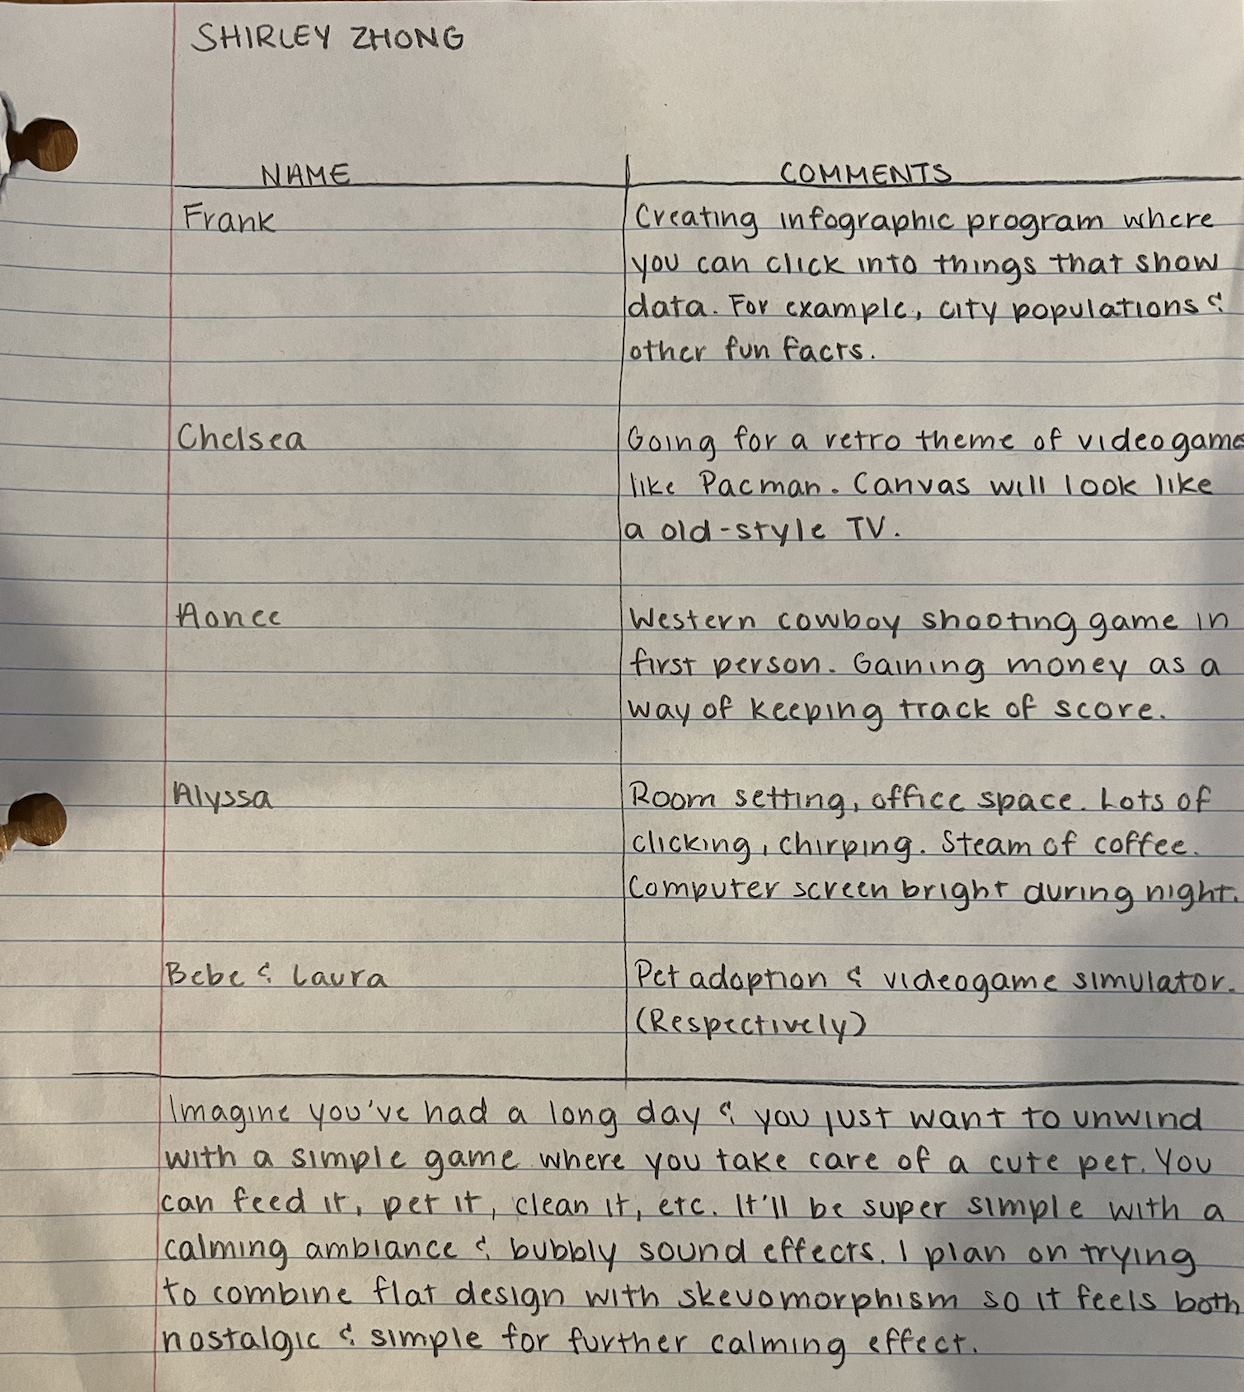 SHIRLEY ZHONG
NAME COMMENTS
Frank Creating infographic program where
you can click into things that show
data. For example, city populations &
other fun facts.
Chelsea Going for a retro theme of videogame
like Pacman. Canvas will look like
a old-style TV.
Aonee Western cowboy shooting game in
first person. Gaining money as a
way of keeping track of score.
Alyssa Room setting, office space. Lots of
clicking, chirping. Steam of coffee.
Computer screen bright during night.
Bebe & Laura Pet adoption & videogame simulator.
(Respectively)
Imagine you've had a long day & you just want to unwind
with a simple game where you take care of a cute pet. You
can feed it, pet it, clean it, etc. It'll be super simple with a
calming ambiance & bubbly sound effects. I plan on trying
to combine flat design with skevomorphism so it feels both
nostalgic & simple for further calming effect.